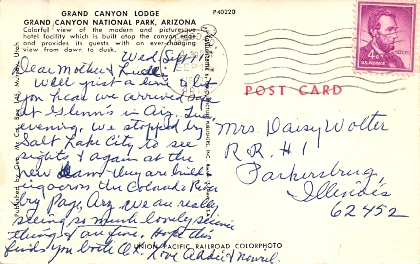 GRAND CANYON LODGE
GRAND CANYON NATIONAL PARK, ARIZONA
P40220
Colorful view of the modern and picturesque
hotel facility which is built atop the canyon edge
and provides its guests with an ever-changing
view from dawn to dusk.
Wed. Sept
Dear Mother &
Well just a line to let
you hear we arrived safe
at Glenn's in Ariz.
evening. We stopped by
Salt Lake City to see
sights & again at the
new dam they are build-
ing across the Colorado River
by Page, Ariz. we are really
seeing so much lovely scenic
things & are fine. Hope this
finds you both O.K. Love Addie &
UNION PACIFIC RAILROAD COLORPHOTO
4¢
U.S. POSTAGE
POST CARD
Mrs. Daisy Wolter
R.R. #1
Parkersburg,
Illinois
62452